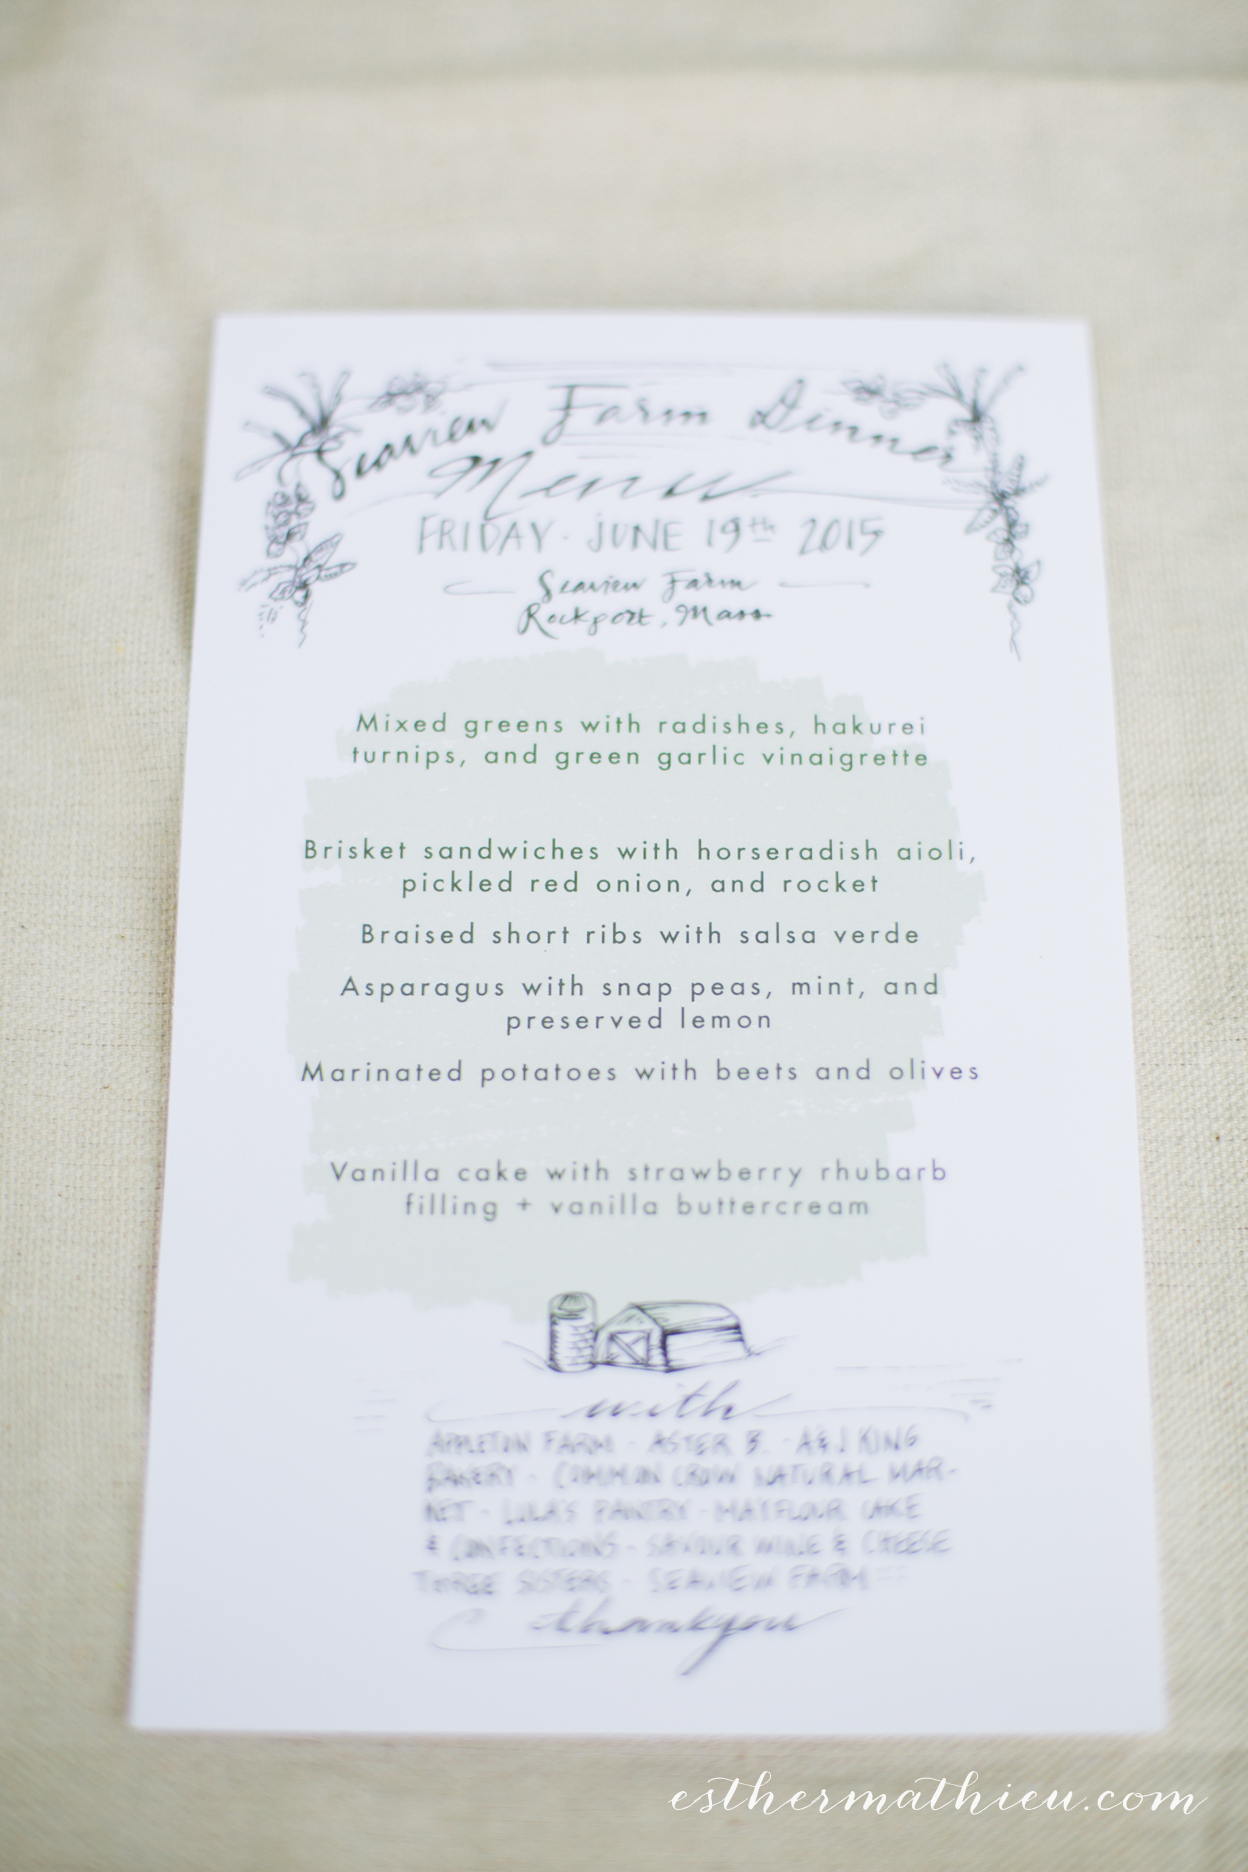 Seaview Farm Dinner
Menu
FRIDAY · JUNE 19th 2015
Seaview Farm
Rockport, Mass
Mixed greens with radishes, hakurei
turnips, and green garlic vinaigrette
Brisket sandwiches with horseradish aioli,
pickled red onion, and rocket
Braised short ribs with salsa verde
Asparagus with snap peas, mint, and
preserved lemon
Marinated potatoes with beets and olives
Vanilla cake with strawberry rhubarb
filling + vanilla buttercream
with
APPLETON FARM - ASTER B. - A&J KING
BAKERY - COMMON CROW NATURAL MAR-
KET - LULA'S PANTRY - MAYFLOUR CAKE
& CONFECTIONS - SAVOUR WINE & CHEESE
THREE SISTERS - SEAVIEW FARM
thankyou
esthermathieu.com